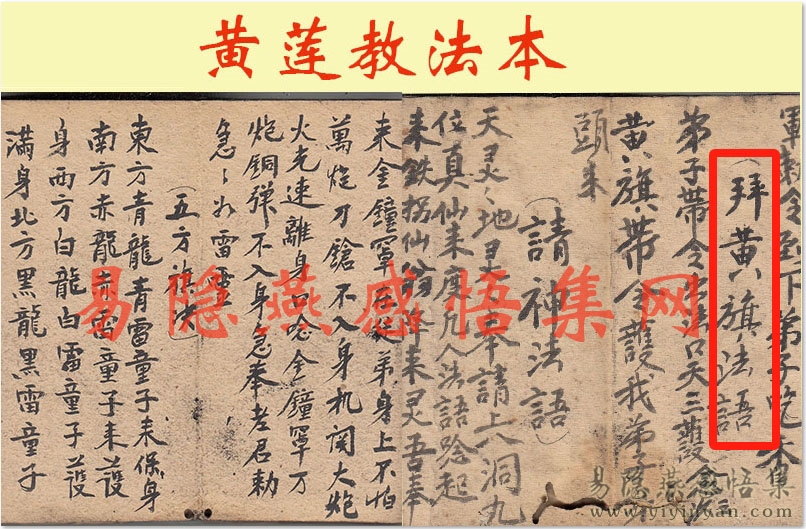 黄莲教法本
令下弟子吃
(拜黄旗法語)
弟子带令口天三護
黄旗带令護我弟子
頭来
(請神法語)
天灵々地灵々奉請上八洞九
位真仙来度凡人法語起
来鉄拐仙降来灵吾奉
来金鐘罩在弟身上不怕
萬炮刀鎗不入身机関大炮
火光速離身口念金鐘罩万
炮銅弹不入身急奉老君勅
急々如雷
(五方旗)
東方青龍青雷童子来保身
南方赤龍赤雷童子来護
身西方白龍白雷童子護
满身北方黑龍黑雷童子
易隐燕感悟集网
易隐燕感悟集
www.yiyinyan.com